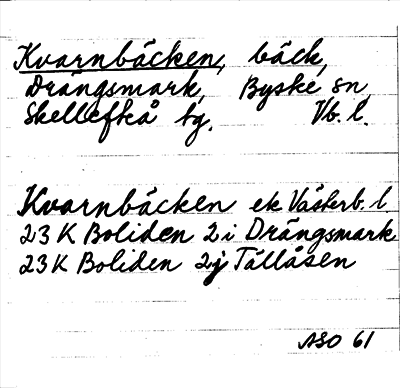 Kvarnbäcken, bäck,
Drängsmark, Byske sn,
Skellefteå tg. Vb. l.
Kvarnbäcken ek Västerb. l
23 K Boliden 2 i Drängsmark
23 K Boliden 2j Tällåsen
ASO 61